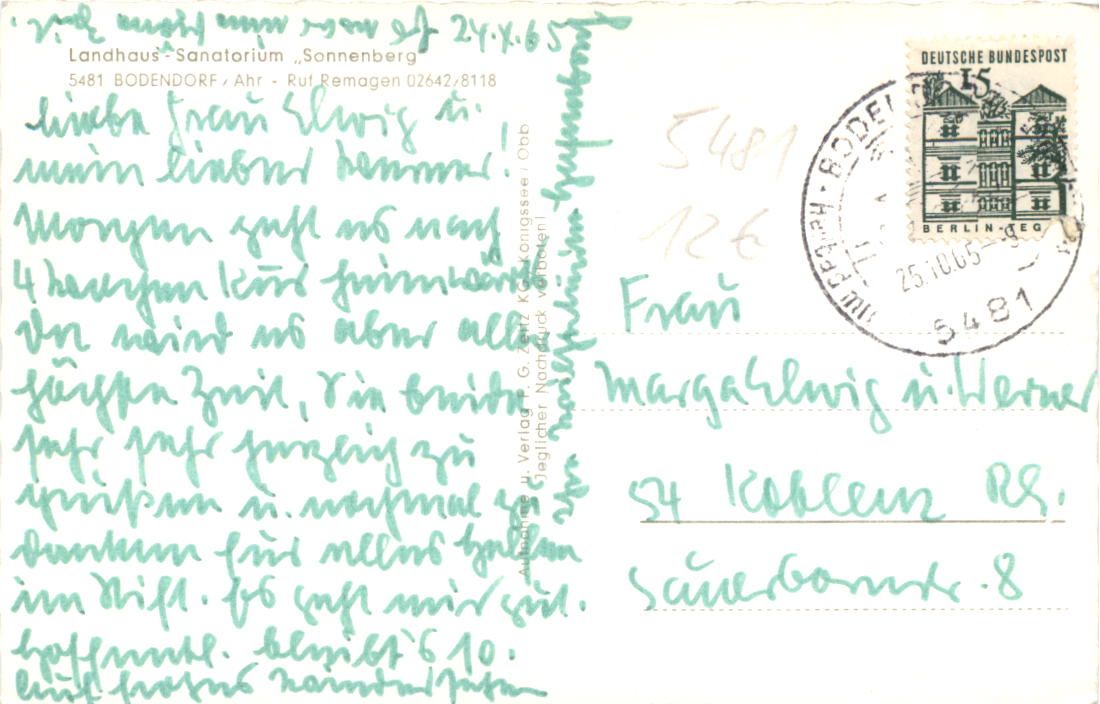 24.X.65
Landhaus-Sanatorium „Sonnenberg"
5481 BODENDORF/Ahr - Ruf Remagen 02642/8118
Liebe Frau Elwig u.
mein lieber Werner!
Morgen geht es nach
4 Wochen Kur heimwärts
Da wird es aber aller
höchste Zeit, Sie beide
sehr sehr herzlich zu
grüßen u. nochmal zu
danken für alles Helfen
im Stift. Es geht mir gut.
hoffentl. bleibt's so.
Auf frohes Wiedersehen
Aufnahme u. Verlag P. G. Zeitz KG., Königssee/Obb
Jeglicher Nachdruck verboten!
5481
12€
DEUTSCHE BUNDESPOST
15
BERLIN-TEG
25.10.65-9
5481
Frau
Marga Elwig u. Werner
54 Koblenz Rh.
Sauerbornstr. 8